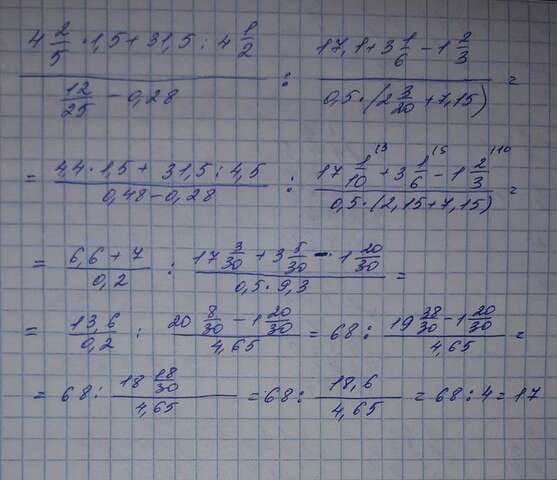 (4 2/5 · 1,5 + 31,5 : 4 1/2) / (12/25 - 0,28) : (17,1 + 3 1/6 - 1 2/3) / (0,5 · (2 3/20 + 7,15)) =
= (4,4 · 1,5 + 31,5 : 4,5) / (0,48 - 0,28) : (17 1/10 (3 + 3 1/6 (5 - 1 2/3 (10) / (0,5 · (2,15 + 7,15)) =
= (6,6 + 7) / 0,2 : (17 3/30 + 3 5/30 - 1 20/30) / (0,5 · 9,3) =
= 13,6 / 0,2 : (20 8/30 - 1 20/30) / 4,65 = 68 : (19 38/30 - 1 20/30) / 4,65 =
= 68 : (18 18/30) / 4,65 = 68 : 18,6 / 4,65 = 68 : 4 = 17